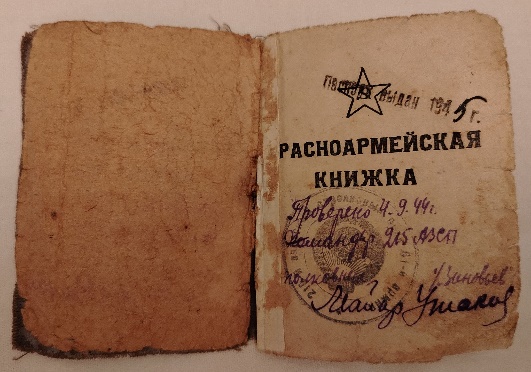 Паспорт выдан 1945 г.
РАСНОАРМЕЙСКАЯ
КНИЖКА
Проверено 4.9.44г.
Командир 215 АЗСП
полковник Зиновьев
Майор Ушаков